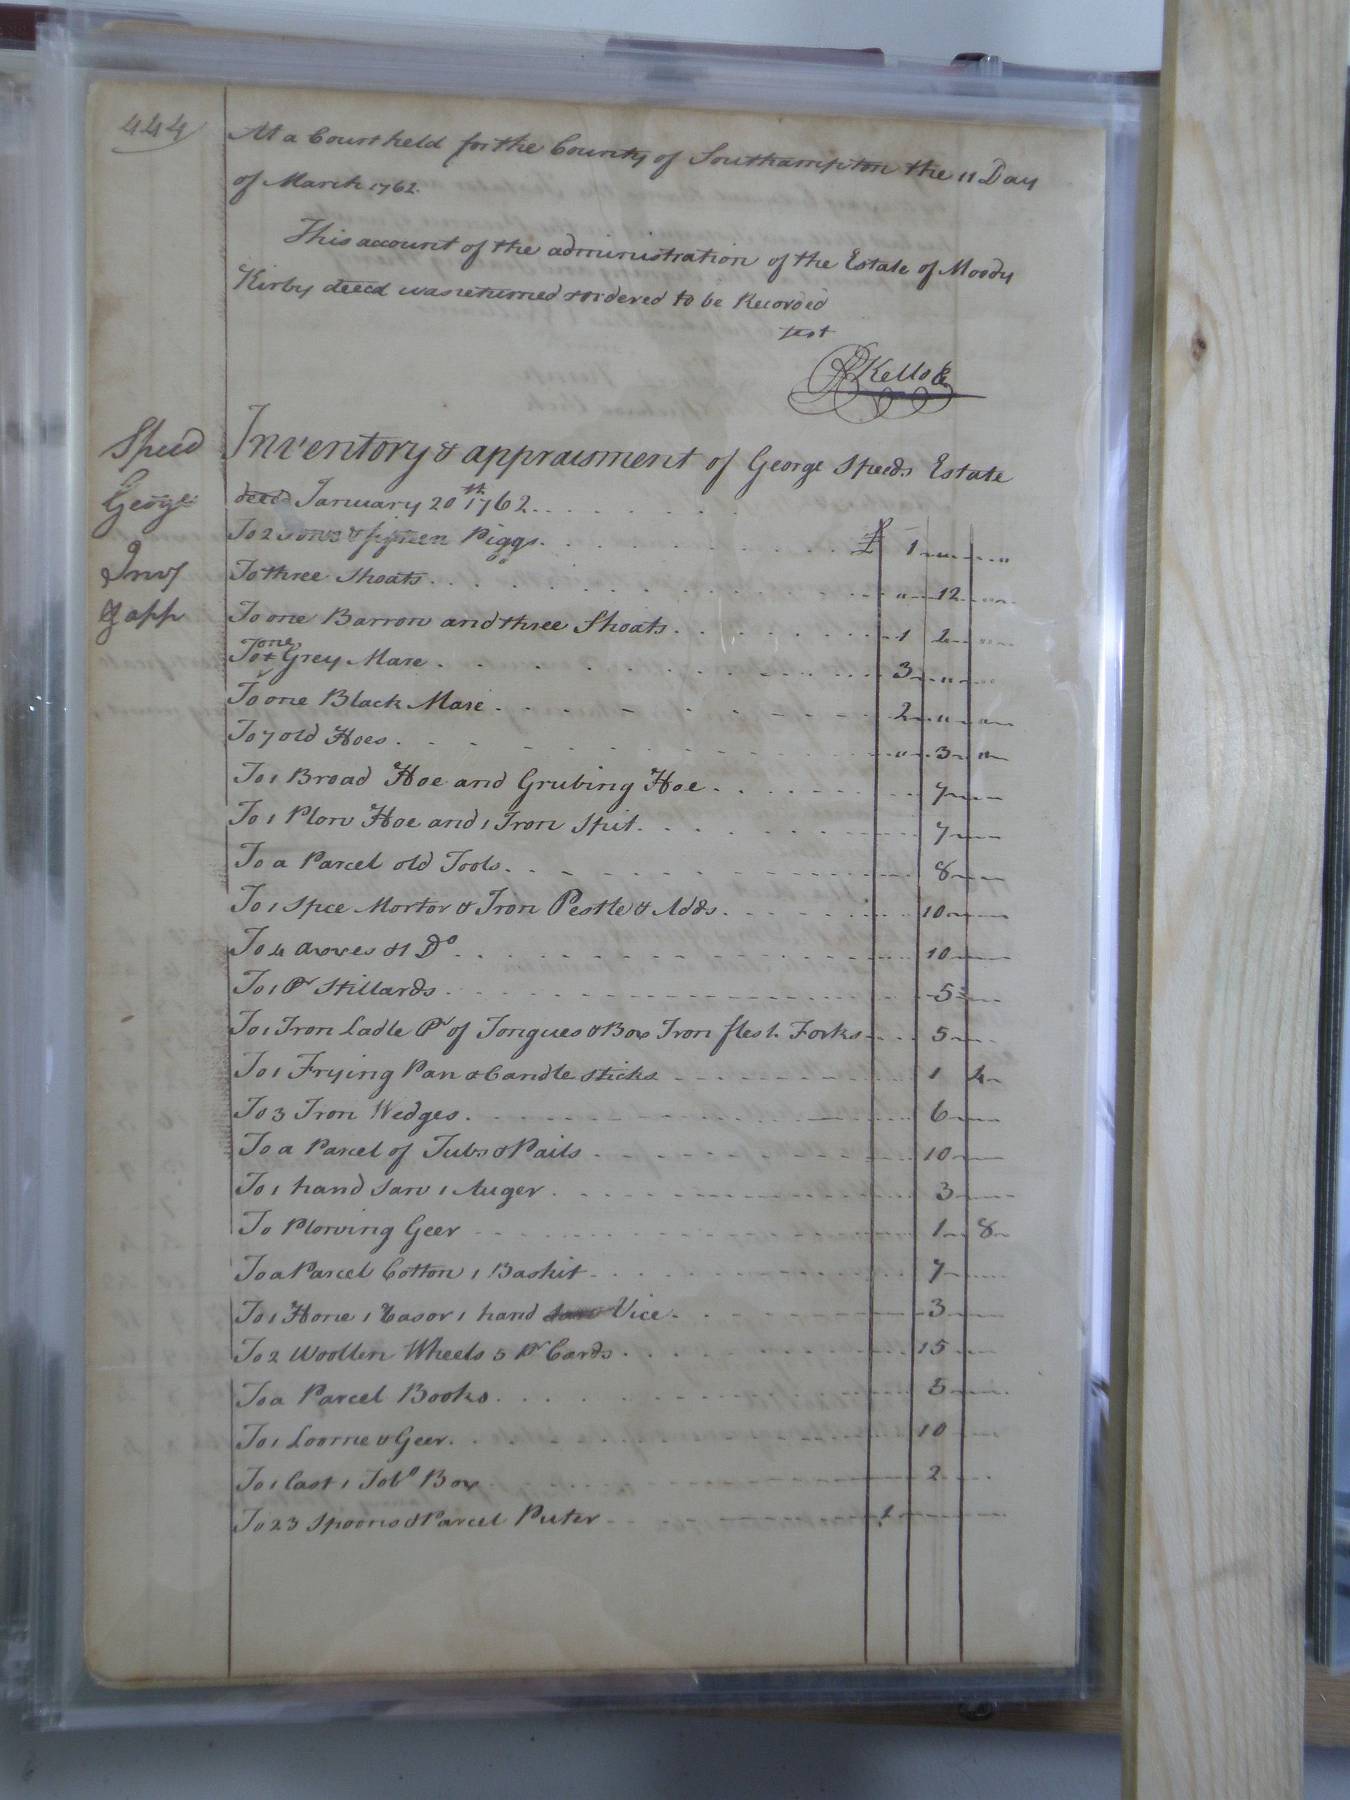 444
At a Court held for the County of Southampton the 11 Day
of March 1762.
This account of the administration of the Estate of Moody
Kirby decd was returned & ordered to be Recorded
test
R Kello
Speed
George
Inv
& app
Inventory & appraisment of George Speeds Estate
decd January 20th 1762
To 2 Sows & fifteen Piggs £ 1 " "
To three Shoats " 12 "
To one Barrow and three Shoats 1 2 "
To one Grey Mare 3 " "
To one Black Mare 2 " "
To 7 old Hoes " 3 "
To 1 Broad Hoe and Grubing Hoe 7
To 1 Plow Hoe and 1 Iron Spit 7
To a Parcel old Tools 8
To 1 Spce Mortor & Iron Pestle & Adds 10
To 4 axxes & 1 Do 10
To 1 Pr Stillards 5
To 1 Iron Ladle Pr of Tongues & Box Iron flesh Forks 5
To 1 Frying Pan & Candle sticks 1 4
To 3 Iron Wedges 6
To a Parcel of Tubs & Pails 10
To 1 hand Saw 1 Auger 3
To Plowing Geer 1 8
To a Parcel Cotton 1 Baskit 7
To 1 Hone 1 Rasor 1 hand Vice 3
To 2 Woollen Wheels 5 Pr Cards 15
To a Parcel Books 5
To 1 Loome & Geer 10
To 1 Cast 1 Tobo Box 2
To 23 Spoons & Parcel Puter 1